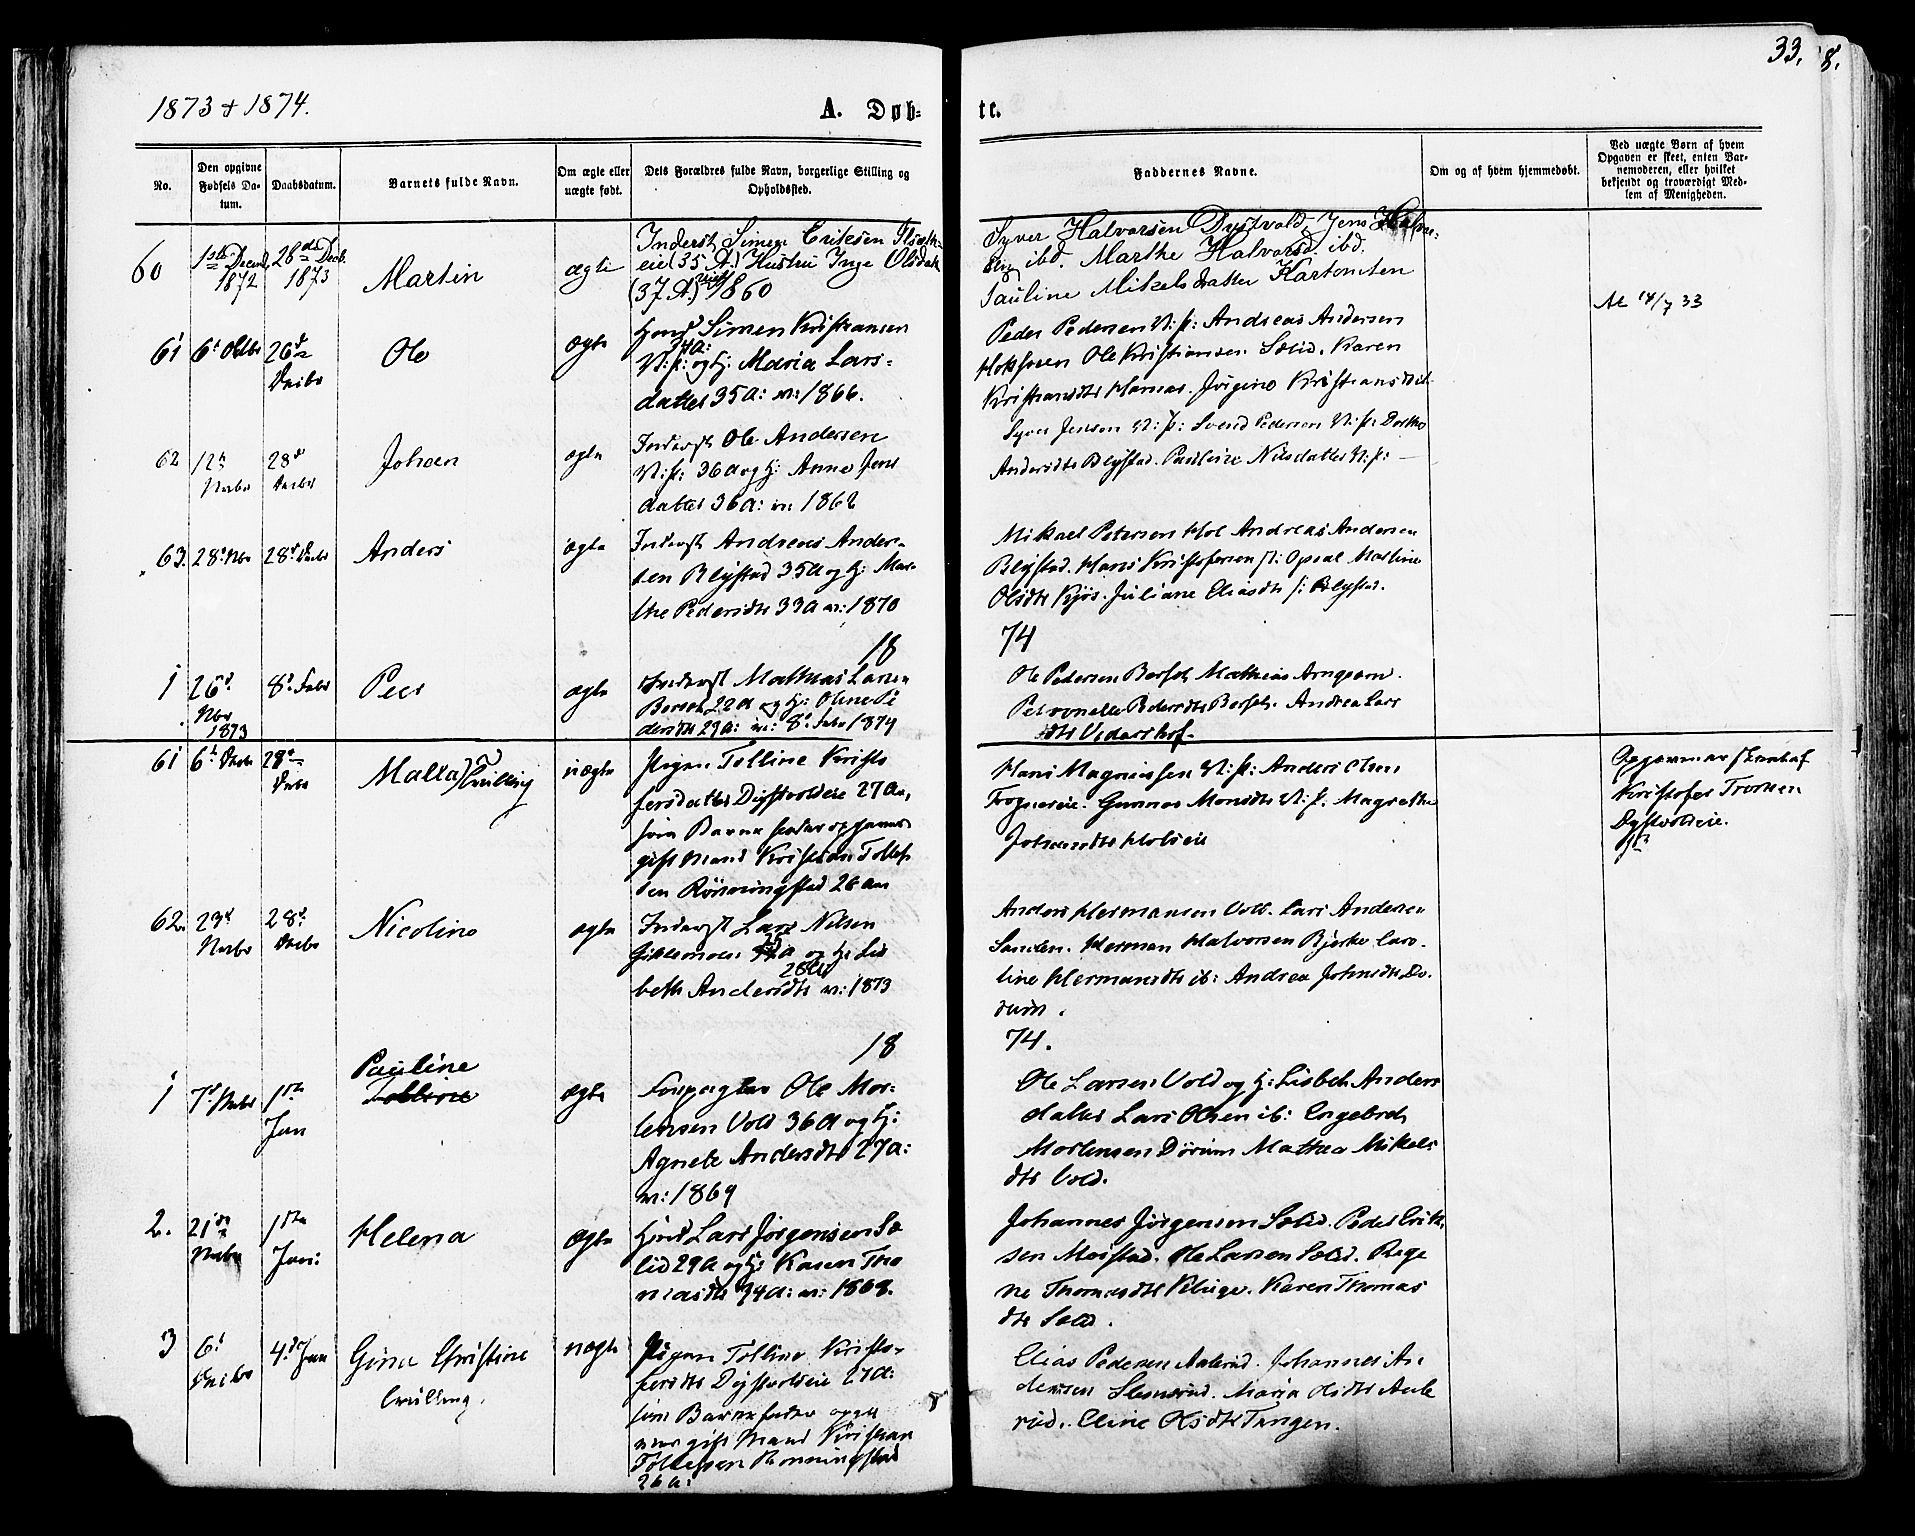 33.
8.
1873 & 1874.
A. Døb-
te.
No.
Den opgivne Fødsels Da-tum.
Daabsdatum.
Barnets fulde Navn.
Om ægte eller uægte født.
Dets Forældres fulde Navn, borgerlige Stilling og Opholdssted.
Faddernes Navne.
Om og af hvem hjemmedøbt.
Ved uægte Børn af hvem Opgaven er skeet, enten Bar-nemoderen, eller hvilket bekjendt og troværdigt Med-lem af Menigheden.
60
1872
28de Decb. 1873
Martin
ægte
Inderst Simen Eriksen
eie (35 A.) Hustru Inge Olsdatt
(37 A.) 1860
Syver Halvorsen Dystvold, Jens
ibd. Marthe Halvorsd. ibd.
Pauline Mikelsdatter
14/7 33
61
6t Octbr
26d Decbr
Ole
ægte
Simen Kristiansen
34a:
N: p: og H: Maria Lars-
datter 35 a: v: 1866.
Peder Pedersen N: p: Andreas Andersen
Ole Kristiansen Sælid. Karen
Kristiansdtr Hornas. Jørgine Kristiansdtr
62
12t Novbr
28d Decbr
Johan
ægte
Inderst Ole Andersen
N: p: 36 a og H: Anne Jens
datter 36 a: v: 1862
Syver Jensen N: p: Svend Pedersen N: p: Dorthe
Andersdtr Blystad. Pauline Nilsdatter N: p:
63.
28d Nbr
28d Decbr
Anders
ægte
Inderst Andreas Ander-
sen Blystad 35 a og H: Mar-
the Pedersdtr 33 a v: 1870
Mikael Petersen Hol Andreas Andersen
Blystad. Hans Kristofersen Opsal Martine
Olsdtr Kjos. Juliane Eliasdtr Blystad.
18
74
1
26d Nbr 1873
8d Febr
Peer
ægte
Inderst Mathias Larsen
22 a og H: Oline Pe
dersdtr 29 a: v: 8d Febr 1874
Ole Pedersen Mathias
Petronelle Pedersdtr Andrea Lars
dtr Vidarshof.
61
6t Octbr
28de Decbr
Malla, Tvilling
uægte
Pigen Tolline Kristo
fersdatter Dystvoldeie 27 Aar,
som Barnefader opgives
gift Mand Kristian Tollef-
sen Rønningstad 26 aar
Hans Magnussen N: p: Anders Olsen
Gunnor Monsdtr N: p. Magrethe
Johannesdtr Holseie
Opgaven er skeet af
Kristofer
Dystvoldeie.
62.
23d Novbr
28d Decbr
Nicoline
ægte
Inderst Lars Nilsen
a og H: Lis
28 a
beth Andersdtr v: 1873
Anders Hermansen Vold. Lars Andersen
Sanden. Herman Halvorsen Bjerke. Caro-
line Hermansdtr ib: Andrea Johnsdtr Do-
rum.
18
74.
1
7d Novbr
1ste Jan
Pauline
Tolline
ægte
Forpagter Ole Mor-
tensen Vold 36 a og H:
Agnete Andersdtr 27 a:
v: 1869
Ole Larsen Vold og H: Lisbeth Anders
datter Lars Olsen ib: Engebret
Mortensen Dørum Mathea Mikels
dtr Vold.
2.
21de Novbr
1ste Jan:
Helena
ægte
Lars Jørgensen Sæ
lid 29 a og H: Karen Tho
masdtr 34 a: v: 1868.
Johannes Jørgensen Sælid. Peder Erik
sen Meistad. Ole Larsen Sælid. Rege
ne Thomasdtr Klinge. Karen Thomas
dtr Sælid.
3
6t Decbr
4d Jan
Gina Christine
Tvilling.
uægte
Pigen Tolline Kristo-
fersdtr Dystvoldeie 27 a:
som Barnefader opgi
ves gift Mand Kristian
Tollefsen Rønningstad
26 a:
Elias Pedersen Aalerud. Johannes An
dersen Maria Olsdtr Aale
rud. Eline Olsdtr Tangen.